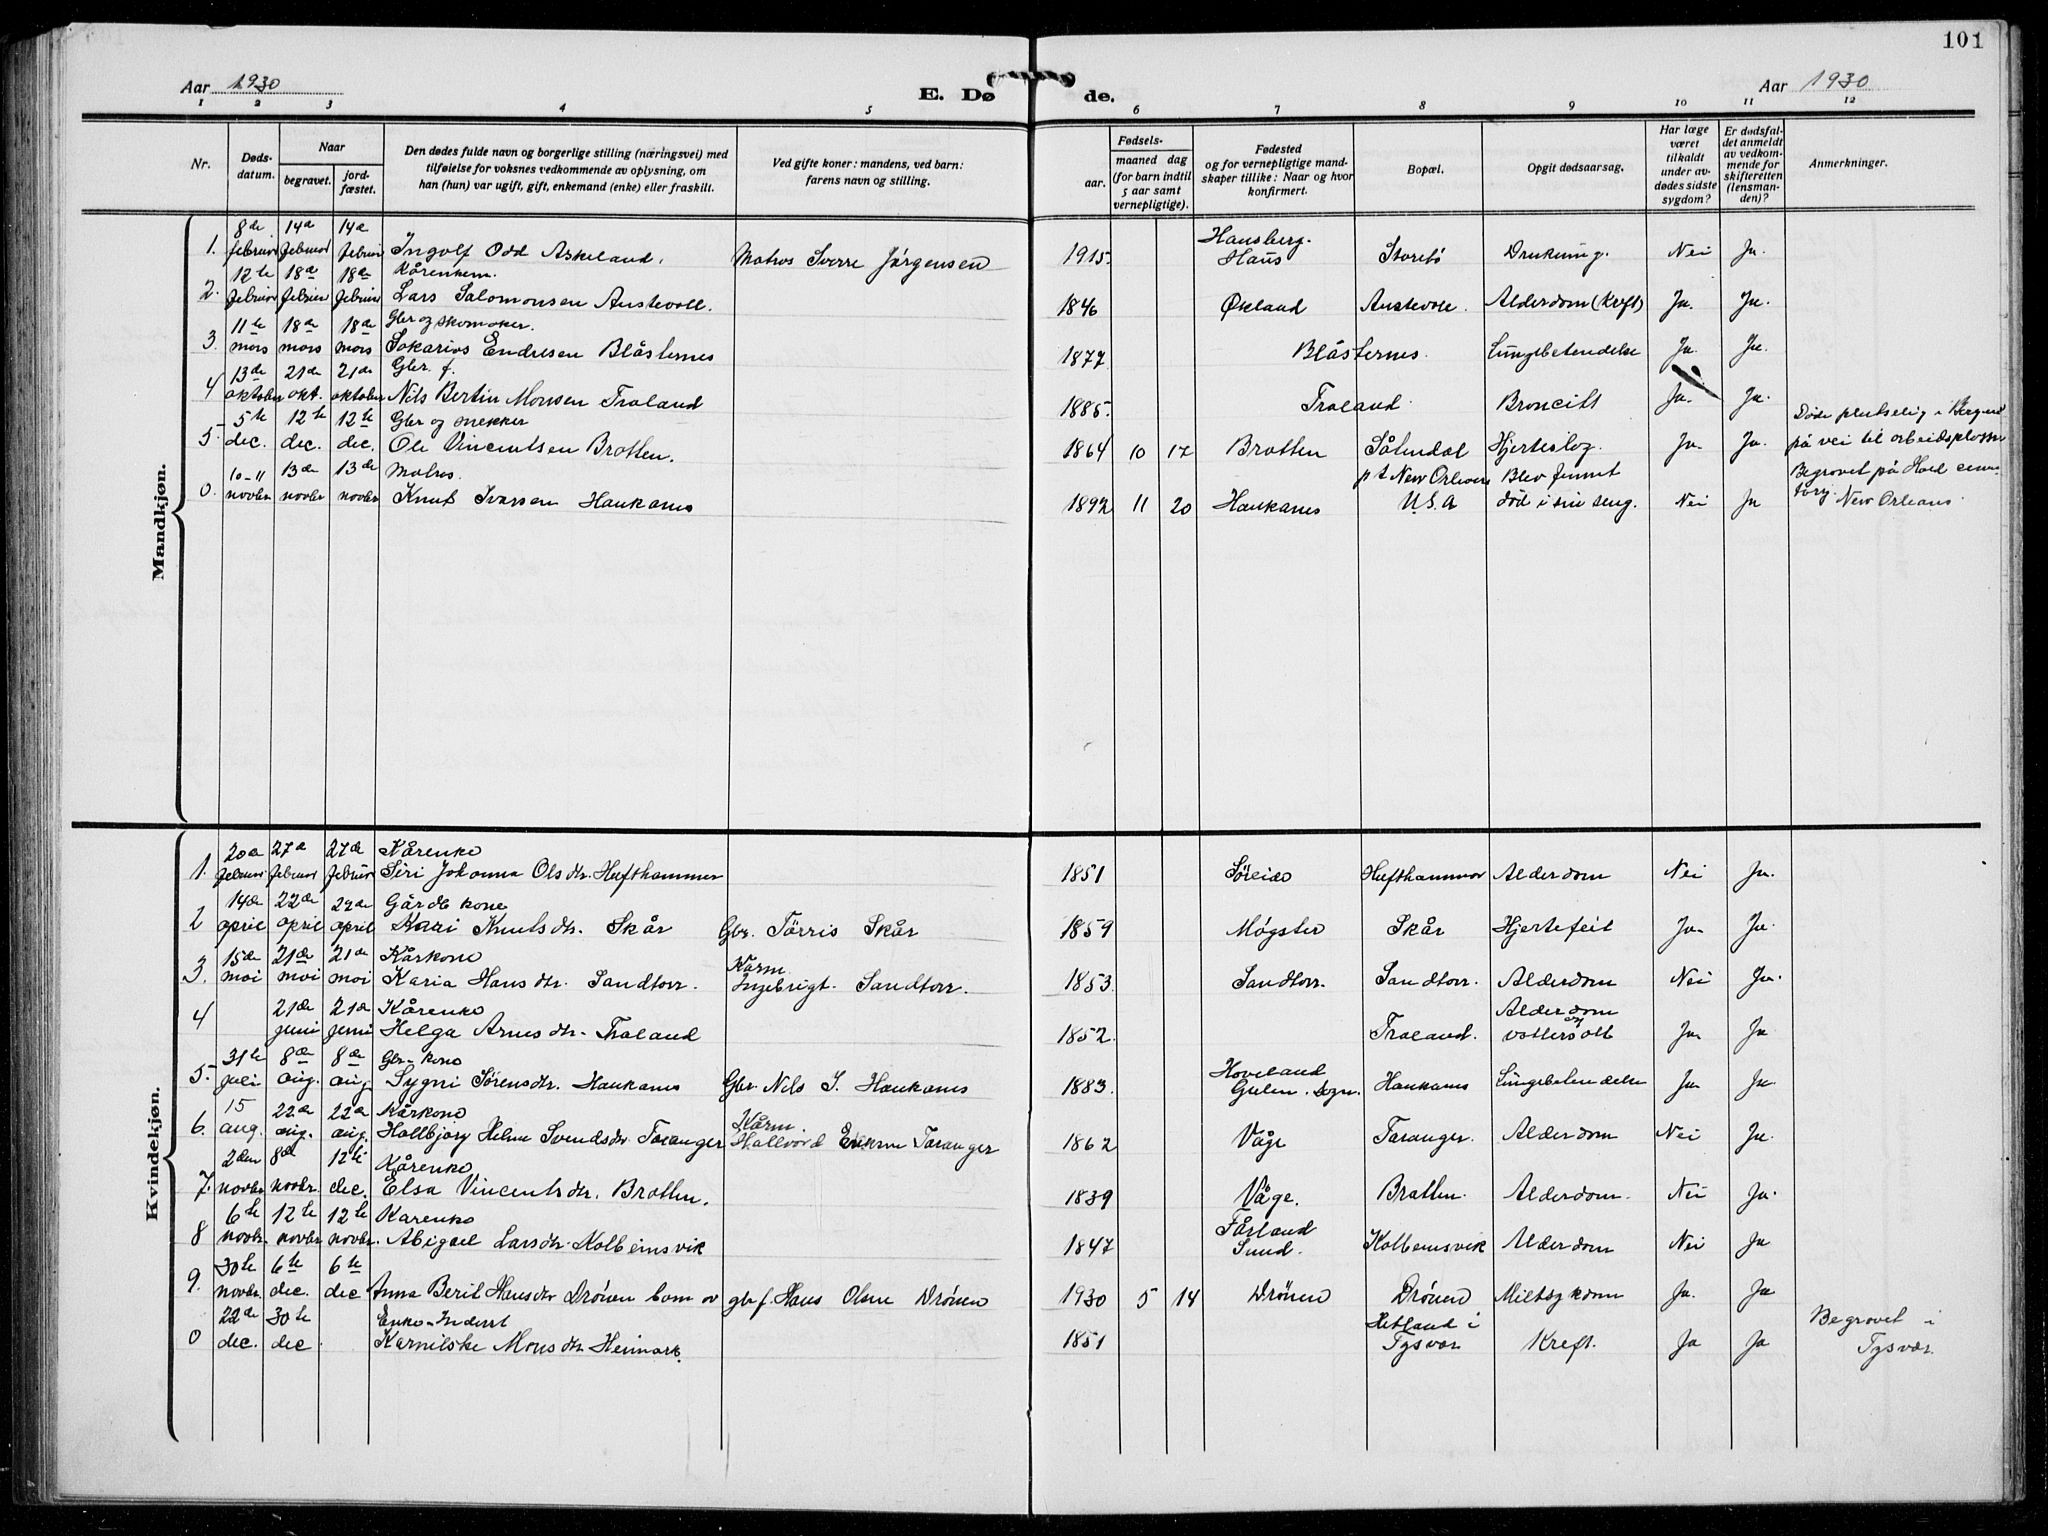 101
Aar 1930
E. Dø de.
Aar 1930
1 2 3 4 5 6 7 8 9 10 11 12
Nr.
Døds-
datum.
Naar
begravet.
jord-
fæstet.
Den dødes fulde navn og borgerlige stilling (næringsvei) med
tilføielse for voksnes vedkommende av oplysning, om
han (hun) var ugift, gift, enkemand (enke) eller fraskilt.
Ved gifte koner: mandens, ved barn:
farens navn og stilling.
Fødsels-
aar.
maaned dag
(for barn indtil
5 aar samt
vernepligtige).
Fødested
og for vernepligtige mand-
skaper tillike: Naar og hvor
konfirmert.
Bopæl.
Opgit dødsaarsag.
Har læge
været
tilkaldt
under av-
dødes sidste
sygdom?
Er dødsfal-
det anmeldt
av vedkom-
mende for
skifteretten
(lensman-
den)?
Anmerkninger.
Mandkjøn.
8de 14de 14de Hausberg.
1. februar februar februar Ingolf Odd Askeland. Matros Sverre Jørgensen 1915. Haus Storebø Drukning. Nei Ja.
12te 18de 18de Kårenkem.
2. februar februar februar Lars Salomonsen Austevoll. 1846 Økland Austevoll. Alderdom (kreft) Ja. Ja.
11te 18de 18de Gbr og skomaker.
3. mars mars mars Sakarias Endresen Blåsternes 1877. Blåsternes. Lungebetendelse Ja. Ja.
13de 21de 21de Gbr. f.
4 oktober okt. oktober Nils Bertin Monsen Troland 1885. Troland. Broncitt Ja. Ja.
5te 12te 12te Gbr og snekker Døde plutselig i Bergen
5. dec. dec. dec. Ole Vincentsen Bratten. 1864 10 17 Bratten Sålendal Hjerteslag. Ja. Ja. på vei til arbeidsplassen
10-11 13de 13de Matros. p t New Orleans Blev funnet Begravet på Hold ceme
0. novbr novbr novbr Knut Ivarsen Haukanes 1892 11 20 Haukanes U.S.A død i sin seng. Nei Ja tory. New Orleans.
Kvindekjøn.
20de 27de 27de Kårenke
1. februar februar februar Siri Johanna Olsdtr. Hufthammer 1851 Søreide Hufthammer Alderdom Nei Ja.
14de 22de 22de Gårdbkone
2 april april april Kari Knutsdtr. Skår Gbr. Tørris Skår 1859 Møgster Skår Hjertefeil Ja. Ja.
15de 21de 21de Kårkone Kårm.
3. mai mai mai Karia Hansdtr. Sandtorr. Ingebrigt. Sandtorr. 1853. Sandtorr. Sandtorr. Alderdom Nei Ja.
21de 21de Kårenke Alderdom
4 juni juni Helga Arnesdtr. Troland 1852. Troland. og vattersott Ja. Ja
31te 8de 8de Gbr- kone Hoveland
5. juli aug. aug Sygni Sørensdtr. Haukanes Gbr. Nils I. Haukanes 1883. Gulen. Sogn. Haukanes Lungebetendelse Ja. Ja.
15 22de 22de Kårkone Kårm.
6. aug. aug. aug. Hallbjørg Helene Svendsdtr. Taranger Hallvard Taranger 1862 Våge Taranger. Alderdom Nei Ja.
2den 8de 12te Kårenke
7. novbr novbr. dec. Elsa Vincentsdtr. Bratten. 1839 Våge. Bratten. Alderdom. Nei Ja.
6te 12te 12te Karenke Fårland
8 novbr. novbr novbr. Abigael Larsdtr. Kolbeinsvik 1847 Sund. Kolbeinsvik Alderdom Nei Ja
30te 6te 6te
9. novbr. dec. dec Anna Berit Hansdtr Drønen barn av gbr f. Hans Olsen Drønen 1930 5 14 Drønen Drønen Miltsykdom Ja. Ja
22de 30te Enke-Inderst Hetland i Begravet i
0 dec. dec. Karnilske Monsdtr. Heimark. 1851 Tysvær Kreft. Ja Ja Tysvær.